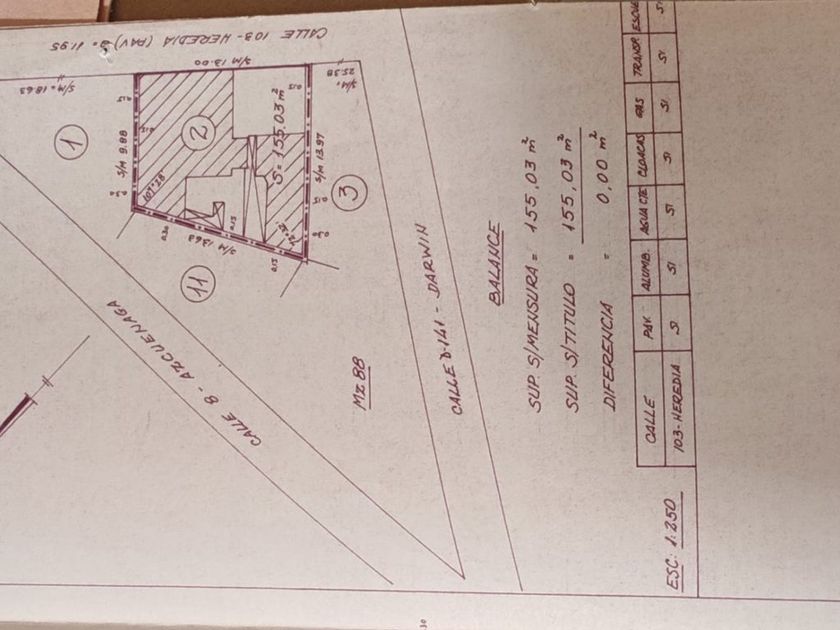 CALLE 103 - HEREDIA (PAV) a = 11.95
S/M = 18.63
S/M 13.00
S/M = 25.38
1
2
3
11
S/M 9.88
S = 155.03 m²
S/M 13.97
S/M 13.63
107° 28'
0.15
0.30
0.15
0.15
CALLE 8 - AZCUENAGA
Mz 88
CALLE D-141 - DARWIN
BALANCE
SUP. S/MENSURA = 155,03 m²
SUP. S/TITULO = 155,03 m²
DIFERENCIA = 0,00 m²
CALLE PAV. ALUMB. AGUA CTE CLOACAS GAS TRANSP. ESCUE
103-HEREDIA SI SI SI SI SI SI SI
ESC: 1:250
30